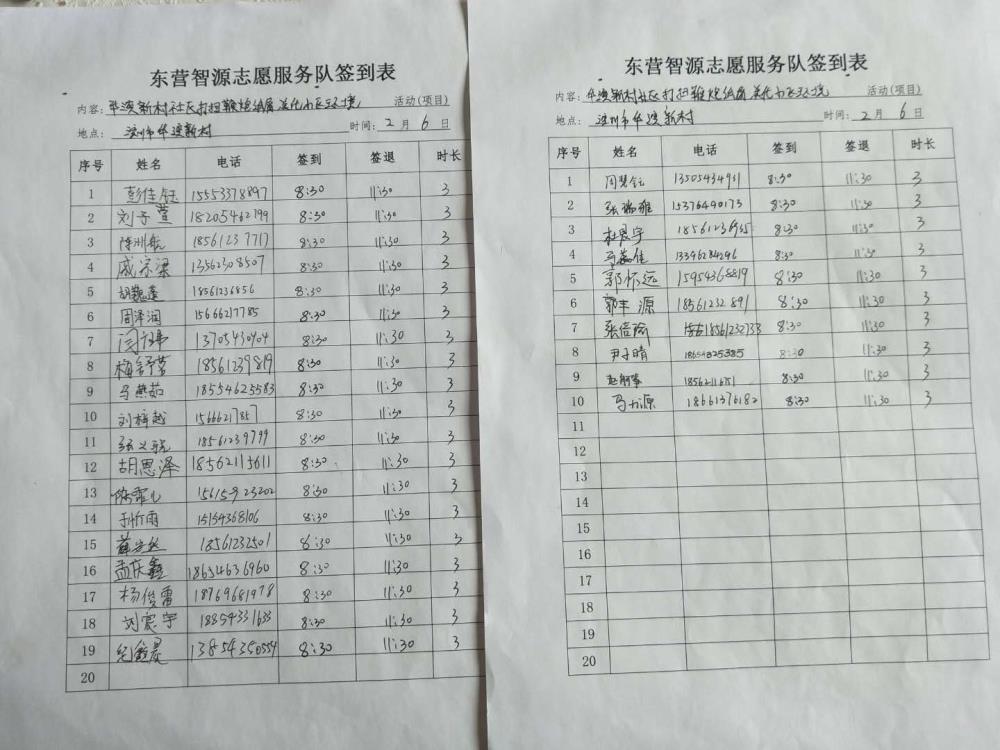 东营智源志愿服务队签到表
内容：华滨新村社区打扫鞭炮纸屑美化小区环境 活动(项目)
地点：滨州市华滨新村 时间：2月6日
序号 姓名 电话 签到 签退 时长
1 彭佳钰 15553378897 8:30 11:30 3
2 刘子萱 18205462799 8:30 11:30 3
3 陈洲航 18561237717 8:30 11:30 3
4 戚宗梁 13562308507 8:30 11:30 3
5 胡魏蓬 18561236856 8:30 11:30 3
6 周泽润 15666217785 8:30 11:30 3
7 闫 13705430404 8:30 11:30 3
8 梅舒莹 18561239819 8:30 11:30 3
9 马燕茹 18554625583 8:30 11:30 3
10 刘梓越 1566621785 8:30 11:30 3
11 张义 18561239799 8:30 11:30 3
12 胡思泽 18562115611 8:30 11:30 3
13 8:30 11:30 3
14 孙忻雨 15154368106 8:30 11:30 3
15 薛 18561232501 8:30 11:30 3
16 孟庆鑫 18654636960 8:30 11:30 3
17 杨俊雷 18769681978 8:30 11:30 3
18 刘宸宇 18854331633 8:30 11:30 3
19 纪鑫晨 13854350554 8:30 11:30 3
20
东营智源志愿服务队签到表
内容：华滨新村社区打扫鞭炮纸屑美化小区环境 活动(项目)
地点：滨州市华滨新村 时间：2月6日
序号 姓名 电话 签到 签退 时长
1 周慧钰 13505434951 8:30 11:30 3
2 张瑞雅 15376490173 8:30 11:30 3
3 杜晨宇 8:30 11:30 3
4 马佳 13396284296 8:30 11:30 3
5 郭怀远 15954368819 8:30 11:30 3
6 郭丰源 18561232891 8:30 11:30 3
7 张倍瑜 18561232733 8:30 11:30 3
8 尹子晴 18654325385 8:30 11:30 3
9 赵 8:30 11:30 3
10 马源 18661376182 8:30 11:30 3
11
12
13
14
15
16
17
18
19
20